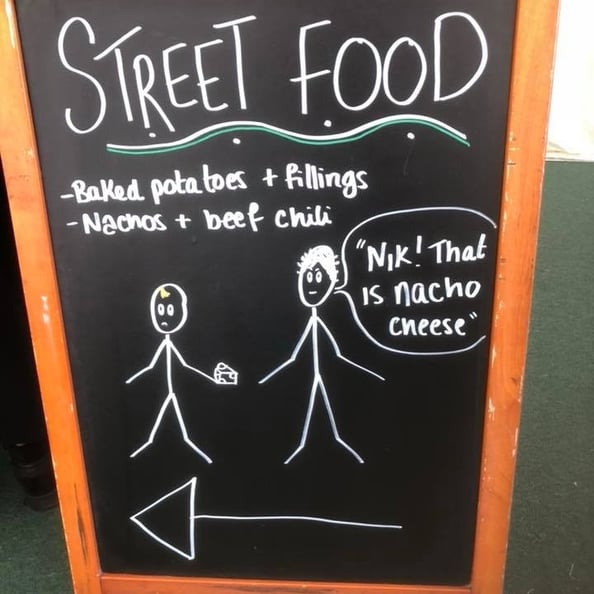 STREET FOOD
-Baked potatoes + fillings
-Nachos + beef chili
"NIK! That
is nacho
cheese"